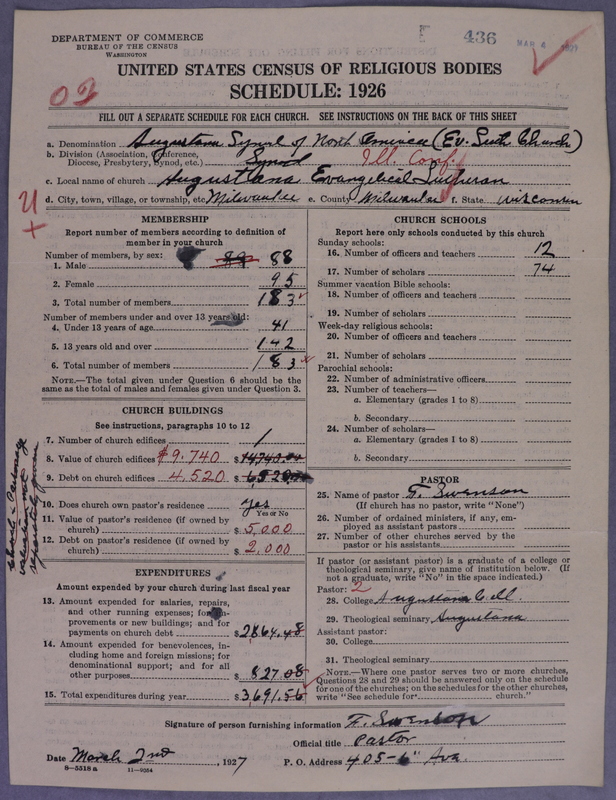 DEPARTMENT OF COMMERCE
BUREAU OF THE CENSUS
WASHINGTON
436
MAR 4 1927
UNITED STATES CENSUS OF RELIGIOUS BODIES
SCHEDULE: 1926
02
FILL OUT A SEPARATE SCHEDULE FOR EACH CHURCH. SEE INSTRUCTIONS ON THE BACK OF THIS SHEET
a. Denomination Augustana Synod of North America (Ev. Luth Church)
b. Division (Association, Conference, Diocese, Presbytery, Synod, etc.) Synod Ill. Conf.
c. Local name of church Augustana Evangelical Lutheran
d. City, town, village, or township, etc. Milwaukee e. County Milwaukee f. State Wisconsin
U
+
MEMBERSHIP
Report number of members according to definition of
member in your church
Number of members, by sex:
1. Male 89 88
2. Female 95
3. Total number of members 183
Number of members under and over 13 years old:
4. Under 13 years of age 41
5. 13 years old and over 142
6. Total number of members 183
NOTE.—The total given under Question 6 should be the
same as the total of males and females given under Question 3.
CHURCH BUILDINGS
See instructions, paragraphs 10 to 12
7. Number of church edifices 1
8. Value of church edifices $9.740 $14740.00
9. Debt on church edifices 4,520 $6520.00
10. Does church own pastor's residence yes
Yes or No
11. Value of pastor's residence (if owned by
church) $5,000
12. Debt on pastor's residence (if owned by
church) $2,000
Church & Parsonage
valuation not
separately given
EXPENDITURES
Amount expended by your church during last fiscal year
13. Amount expended for salaries, repairs,
and other running expenses; for im-
provements or new buildings; and for
payments on church debt $2864.48
14. Amount expended for benevolences, in-
cluding home and foreign missions; for
denominational support; and for all
other purposes $827.08
15. Total expenditures during year $3,691.56
CHURCH SCHOOLS
Report here only schools conducted by this church
Sunday schools:
16. Number of officers and teachers 12
17. Number of scholars 74
Summer vacation Bible schools:
18. Number of officers and teachers
19. Number of scholars
Week-day religious schools:
20. Number of officers and teachers
21. Number of scholars
Parochial schools:
22. Number of administrative officers
23. Number of teachers—
a. Elementary (grades 1 to 8)
b. Secondary
24. Number of scholars—
a. Elementary (grades 1 to 8)
b. Secondary
PASTOR
25. Name of pastor F. Swenson
(If church has no pastor, write "None")
26. Number of ordained ministers, if any, em-
ployed as assistant pastors
27. Number of other churches served by the
pastor or his assistants
If pastor (or assistant pastor) is a graduate of a college or
theological seminary, give name of institution below. (If
not a graduate, write "No" in the space indicated.)
Pastor: 2
28. College Augustana Coll.
29. Theological seminary Augustana
Assistant pastor:
30. College
31. Theological seminary
NOTE.—Where one pastor serves two or more churches,
Questions 28 and 29 should be answered only on the schedule
for one of the churches; on the schedules for the other churches,
write "See schedule for church."
Signature of person furnishing information F. Swenson
Official title Pastor
Date March 2nd, 1927 P. O. Address 405-6" Ava
8—5518 a 11—9064